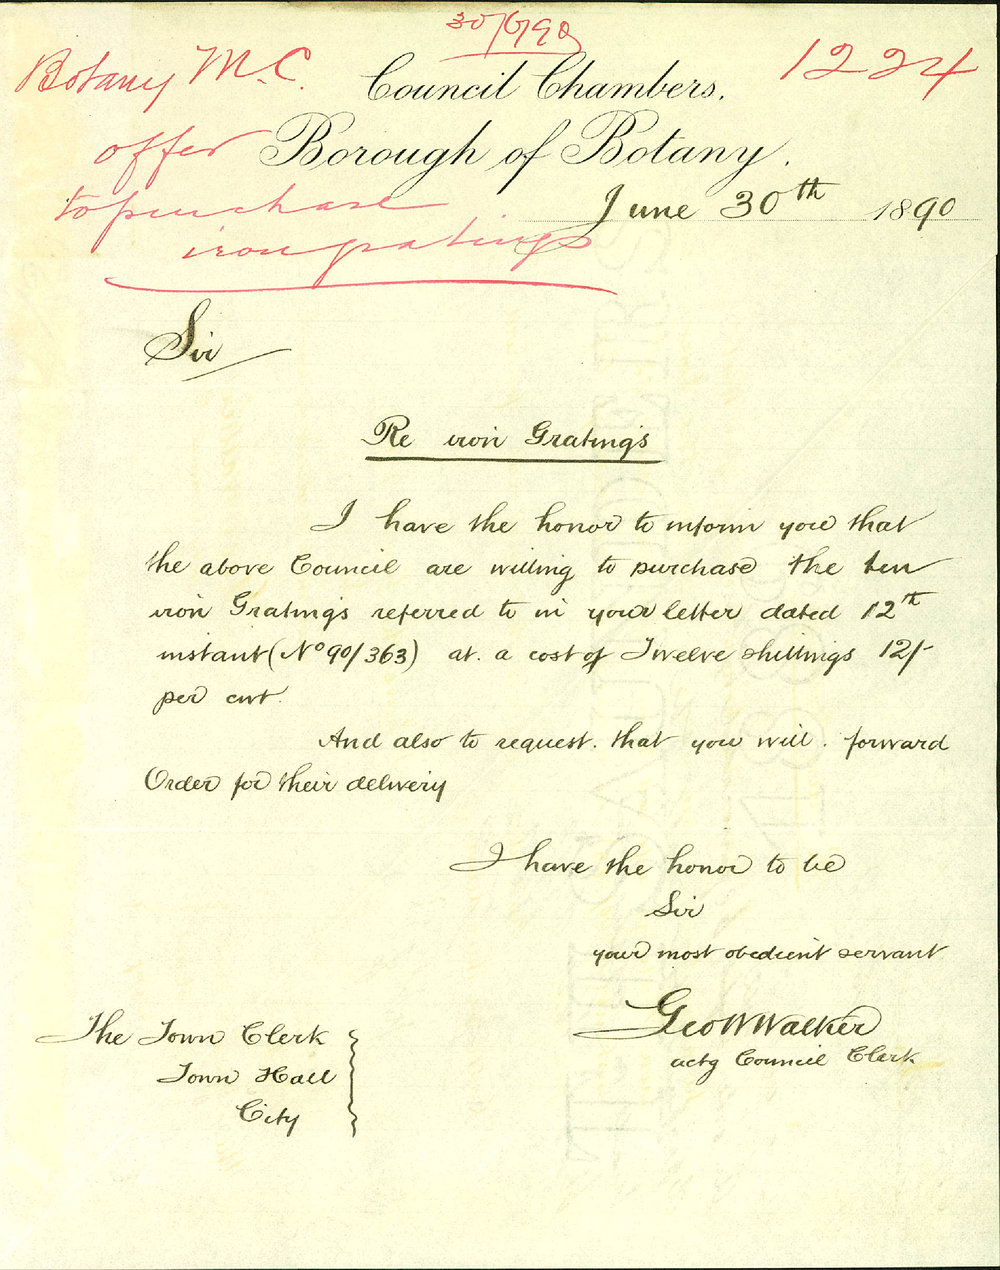 30/6/90
Botany M.C.
1224
offer
to purchase
iron gratings
Council Chambers,
Borough of Botany.
June 30th 1890
Sir
Re iron Gratings
I have the honor to inform you that
the above Council are willing to purchase the ten
iron Gratings referred to in your letter dated 12th
instant (No 90/363) at. a cost of Twelve shillings 12/-
per cwt.
And also to request. that you will. forward
Order for their delivery
I have the honor to be
Sir
your most obedient servant
Geo W Walker
actg Council Clerk
The Town Clerk
Town Hall
City